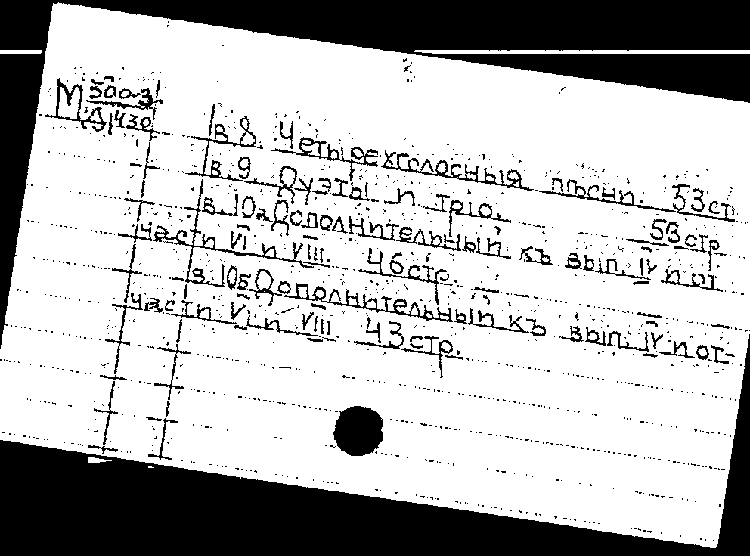 М 300-3
(Д) 430
в 8. Четырехголосныя пѣсни. 53 ст
в. 9. Дуэты и трiо. 53 стр
в. 10а Дополнительный къ вып. IV и от
части VI и VIII. 46 стр.
в. 10б Дополнительный къ вып. IV и от-
части VI и VIII 43 стр.